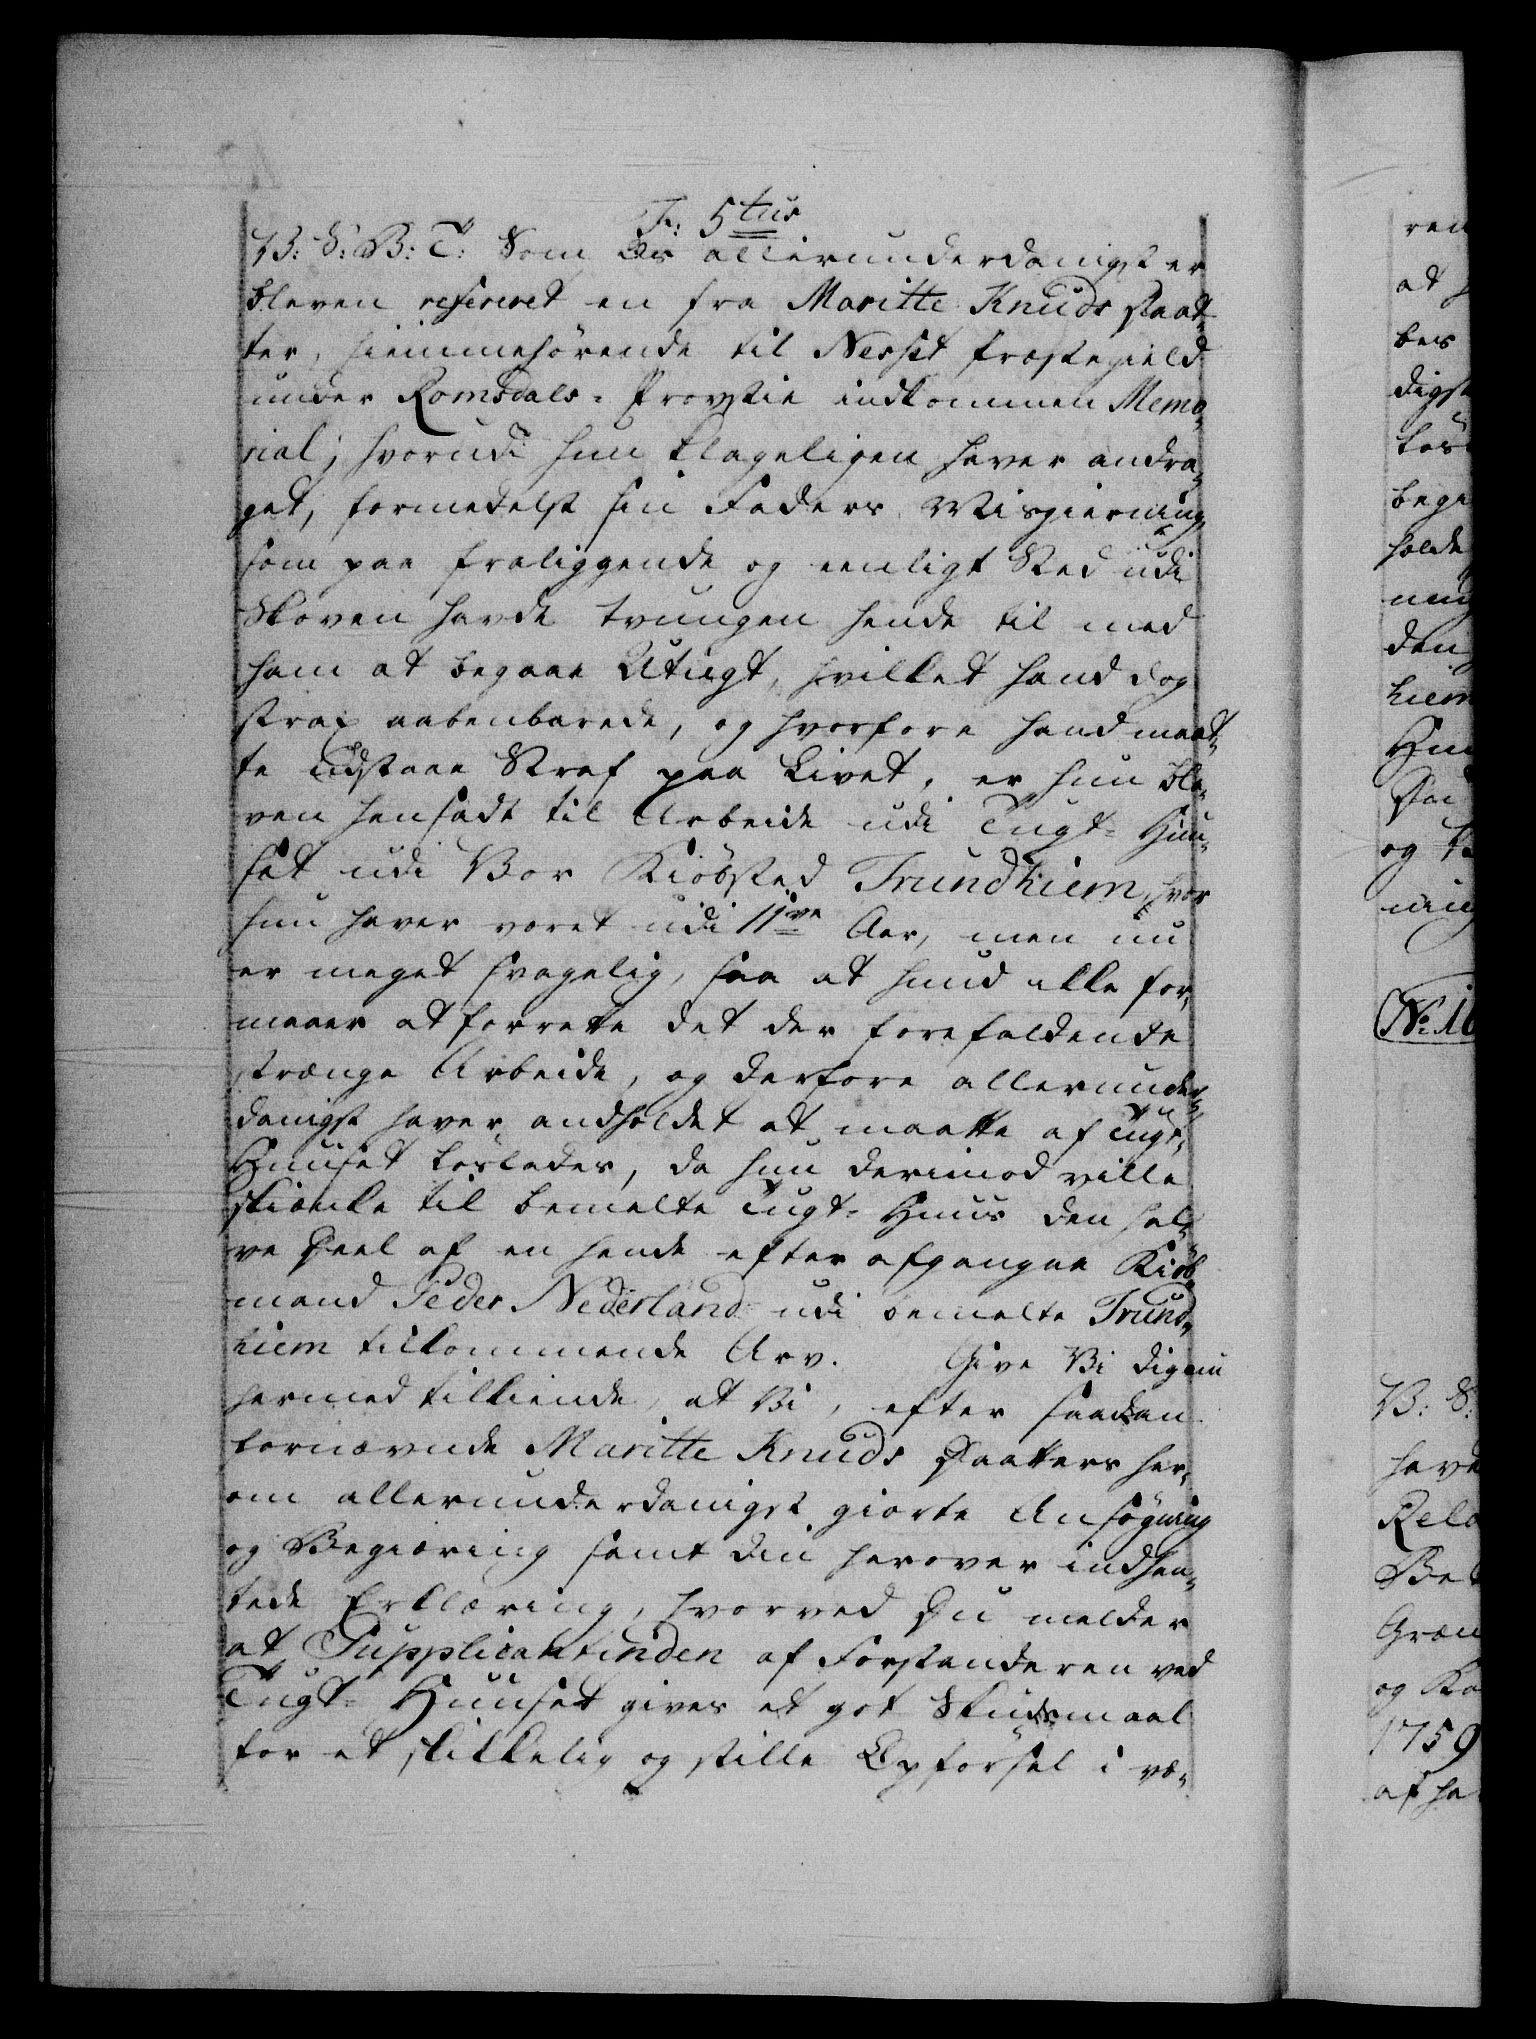 F: 5tus
V: S: B: T: Som Os allerunderdanigst er
bleven refereret en fra Maritte Knuds Daat-
ter, hiemmehörende til Nesset Præstegield
under Romsdals-Provstie indkommen Memo-
rial; hvorudi hun klageligen haver andra-
get, formedelst sin Faders Misgierning
som paa fraliggende og eenligt Sted udi
Skoven havde tvungen hende til med
ham at begaae Utugt, hvilket hand dog
strax aabenbarede, og hvorfore hand maat-
te udstaae Straf paa Livet, er hun ble-
ven hensadt til Arbeide udi Tugt-Huu-
set udi Vor Kiöbsted Trundhiem, hvor
hun haver været udi 11ve Aar, men nu
er meget svagelig, saa at hund ikke for-
maaer at forrette det der forefaldende
strænge Arbeide, og derfore allerunder-
danigst haver andholdet at maatte af Tugt-
Huuset löslades, da hun derimod ville
skiænke til bemelte Tugt-Huus den hal-
ve Deel af en hende efter afgangne Kiöb-
mand Peder Nederland udi bemelte Trund-
hiem tilkommende Arv. Give Vi dig nu
hermed tilkiende, at Vi, efter saadan
fornævnde Maritte Knuds Daatters her-
om allerunderdanigst giorte Ansögning
og Begiæring samt din herover indhen-
tede Erklæring, hvorved Du melder
at Supplicantinden af Forstanderen ved
Tugt-Huuset gives et got Skudsmaal
for et skikkelig og stille Opförsel i væ-
ren
at
bes
digst
lös
bege
holde
den
hiem
og
No. 16
V: S:
have
Rela
Be
Græn
og Ko
1759
af ha